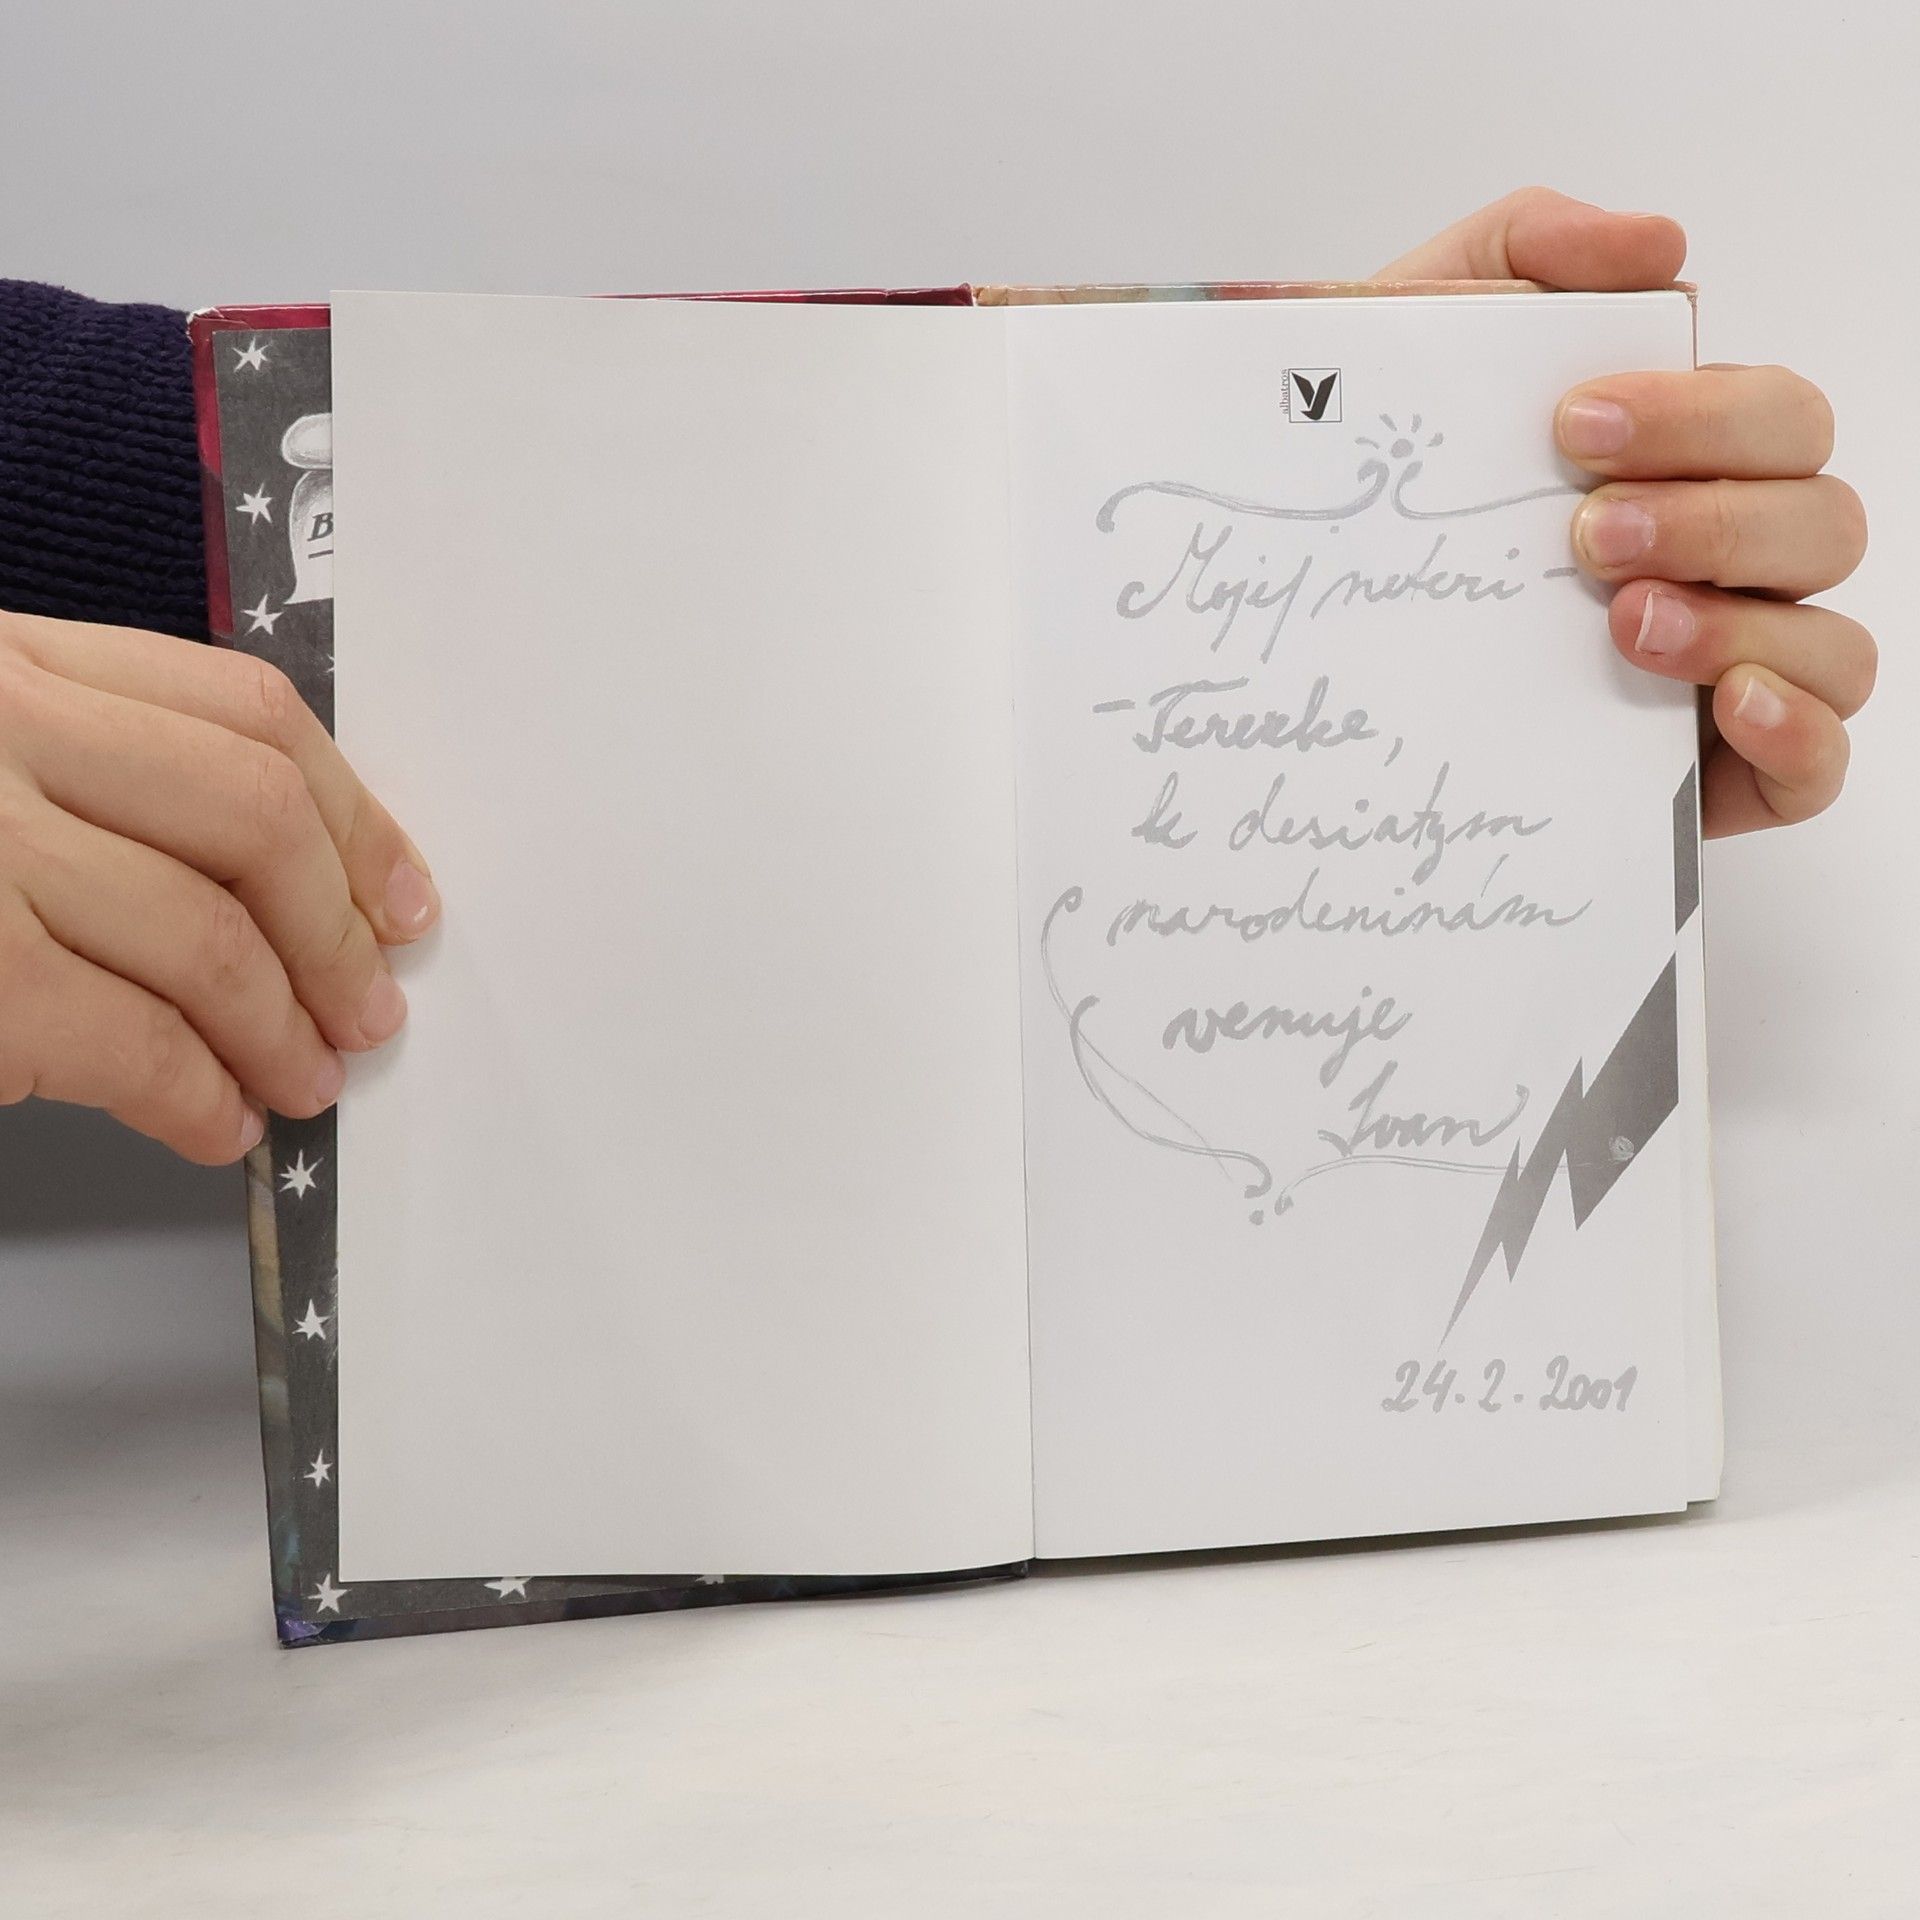 B
albatros
Mojej neteri -
- Terezke,
k desiatym
narodeninám
venuje
Ivan
24.2.2001